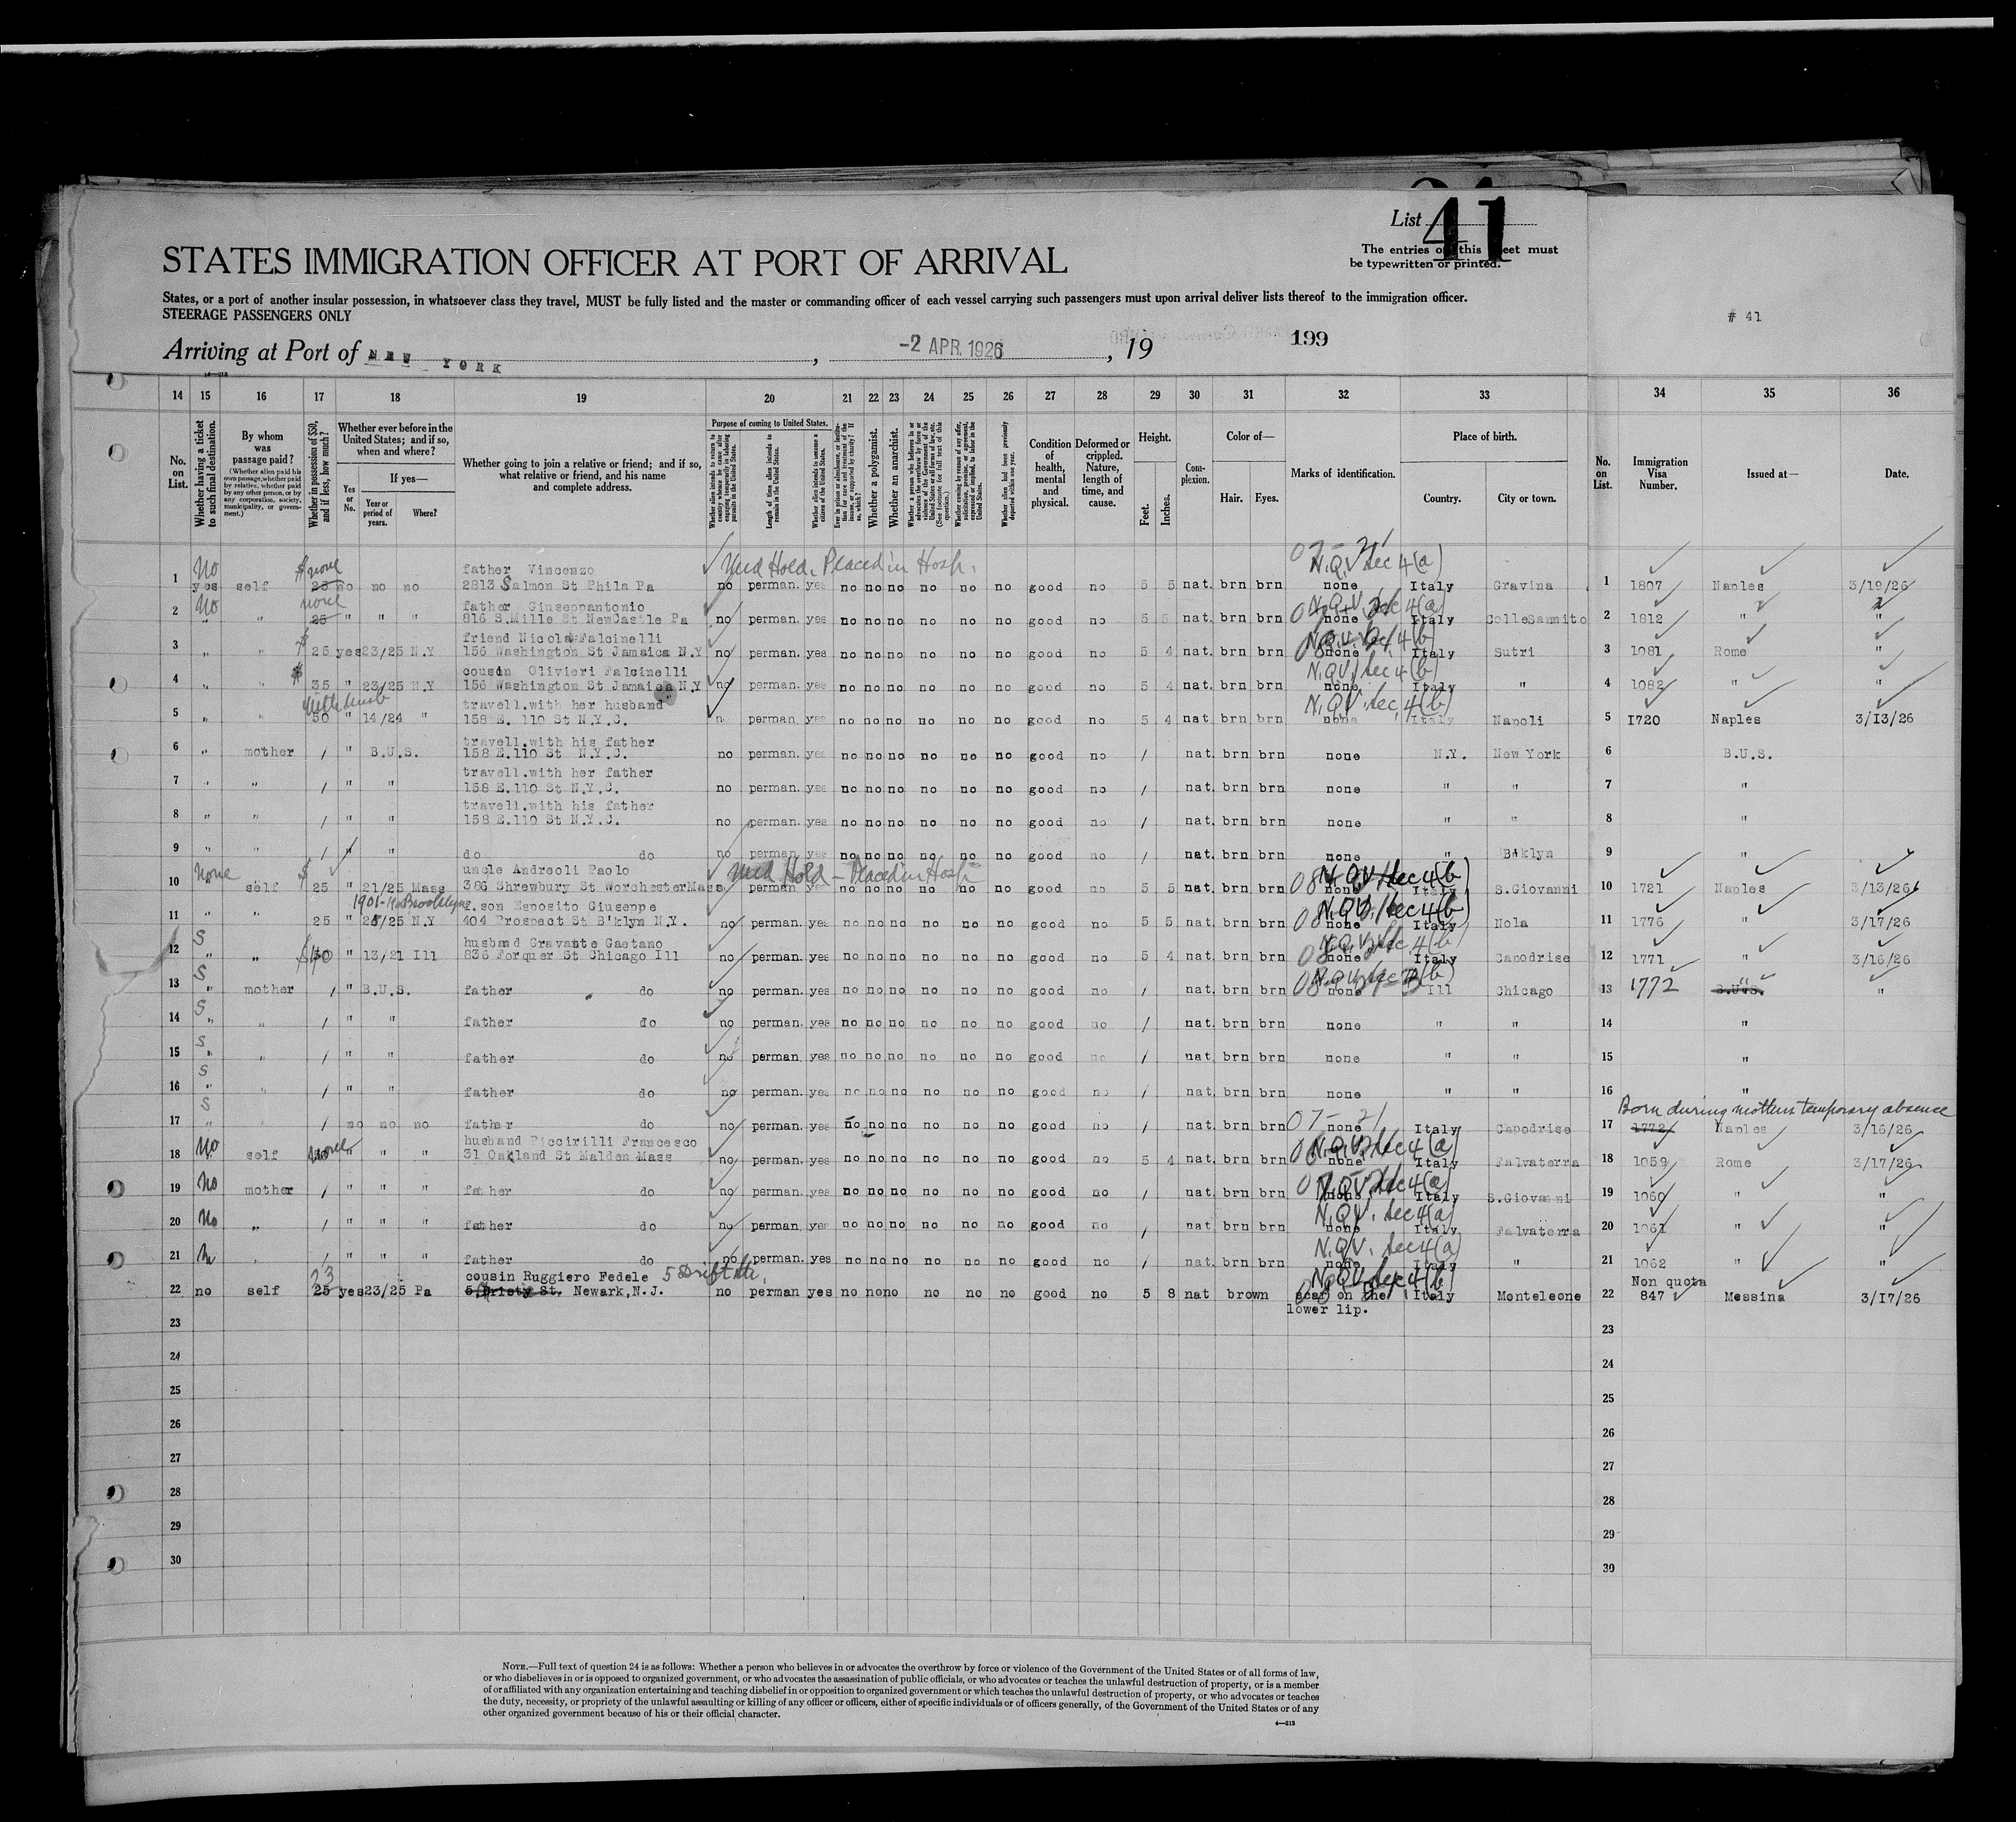 List 41
The entries on this sheet must
be typewritten or printed.
STATES IMMIGRATION OFFICER AT PORT OF ARRIVAL
States, or a port of another insular possession, in whatsoever class they travel, MUST be fully listed and the master or commanding officer of each vessel carrying such passengers must upon arrival deliver lists thereof to the immigration officer.
STEERAGE PASSENGERS ONLY
# 41
Arriving at Port of NEW YORK, -2 APR. 1926, 19 199
14 15 16 17 18 19 20 21 22 23 24 25 26 27 28 29 30 31 32 33 34 35 36
No. on List.
Whether having a ticket to such final destination.
By whom was passage paid?
(Whether alien paid his own passage, whether paid by relative, whether paid by any other person, or by any corporation, society, municipality, or government.)
Whether in possession of $50, and if less, how much?
Whether ever before in the United States; and if so, when and where?
If yes—
Yes or No.
Year or period of years.
Where?
Whether going to join a relative or friend; and if so, what relative or friend, and his name and complete address.
Purpose of coming to United States.
Whether alien intends to return to country whence he came after engaging temporarily in laboring pursuits in the United States.
Length of time alien intends to remain in the United States.
Whether alien intends to become a citizen of the United States.
Ever in prison or almshouse, or institution for care and treatment of the insane, or supported by charity? If so, which?
Whether a polygamist.
Whether an anarchist.
Whether a person who believes in or advocates the overthrow by force or violence of the Government of the United States or all forms of law, etc. (See footnote for full text of this question.)
Whether coming by reason of any offer, solicitation, promise, or agreement, expressed or implied, to labor in the United States.
Whether alien had been previously deported within one year.
Condition of health, mental and physical.
Deformed or crippled. Nature, length of time, and cause.
Height.
Feet. Inches.
Complexion.
Color of—
Hair. Eyes.
Marks of identification.
Place of birth.
Country. City or town.
No. on List.
Immigration Visa Number.
Issued at—
Date.
No $ none father Vincenzo Med Hold. Placed in Hosp. N.Q.V Sec 4(a)
1 yes self 25 no no no 2813 Salmon St Phila Pa no perman. yes no no no no no no good no 5 5 nat. brn brn none Italy Gravina 1 1807 Naples 3/19/26
No none father Giuseppantonio N.Q.V. Sec 4(a)
2 " " 25 " " " 816 S.Mille St NewCastle Pa no perman. yes no no no no no no good no 5 5 nat. brn brn none Italy ColleSannito 2 1812 " "
$ friend Nicola Falcinelli N.Q.V. Sec 4(b)
3 " " 25 yes 23/25 N.Y 156 Washington St Jamaica N.Y no perman. yes no no no no no no good no 5 4 nat. brn brn none Italy Sutri 3 1081 Rome "
$ cousin Olivieri Falcinelli N.Q.V. Sec 4(b)
4 " " 35 " 23/25 N.Y 156 Washington St Jamaica N.Y no perman. yes no no no no no no good no 5 4 nat. brn brn none Italy " 4 1082 " "
With husb travell.with her husband N.Q.V. Sec 4(b)
5 " " 50 " 14/24 " 158 E. 110 St N.Y.C. no perman yes no no no no no no good no 5 4 nat. brn brn none Italy Napoli 5 1720 Naples 3/13/26
travell.with his father
6 " mother / " B.U.S. 158 E.110 St N.Y.C. no perman. yes no no no no no no good no / nat. brn brn none N.Y. New York 6 B.U.S.
travell.with her father
7 " " / " " 158 E.110 St N.Y.C. no perman. yes no no no no no no good no / nat. brn brn none " " 7 "
travell.with his father
8 " " / " " 158 E.110 St N.Y.C. no perman. yes no no no no no no good no / nat. brn brn none " " 8 "
9 " " / " " do do no perman. yes no no no no no no good no / nat. brn brn none " B'klyn 9 "
None $ uncle Andreoli Paolo Med Hold - Placed in Hosp N.Q.V. Sec 4(b)
10 " self 25 " 21/25 Mass 386 Shrewbury St WorchesterMass no perman yes no no no no no no good no 5 5 nat. brn brn none Italy S.Giovanni 10 1721 Naples 3/13/26
1901- Brooklyn son Esposito Giuseppe N.Q.V. Sec 4(b)
11 " " 25 " 25/25 N.Y 404 Prospect St B'klyn N.Y. no perman. yes no no no no no no good no 5 5 nat. brn brn none Italy Nola 11 1776 " 3/17/26
S husband Gravante Gaetano N.Q.V. Sec 4(b)
12 " " $40 " 13/21 Ill 836 Forquer St Chicago Ill no perman. yes no no no no no no good no 5 4 nat. brn brn none Italy Capodrise 12 1771 " 3/16/26
S
13 " mother / " B.U.S. father do no perman. yes no no no no no no good no / nat. brn brn none Ill Chicago 13 1772 B.U.S. "
S
14 " " / " " father do no perman. yes no no no no no no good no / nat. brn brn none " " 14 "
S
15 " " / " " father do no perman. yes no no no no no no good no / nat. brn brn none " " 15 "
S
16 " " / " " father do no perman. yes no no no no no no good no / nat. brn brn none " " 16 "
S 07- 21 Born during mothers temporary absence
17 " " / no no no father do no perman. yes no no no no no no good no / nat. brn brn none Italy Capodrise 17 1772 Naples 3/16/26
No none husband Piccirilli Francesco N.Q.V. Sec 4(a)
18 " self " " " 31 Oakland St Malden Mass no perman. yes no no no no no no good no 5 4 nat. brn brn none Italy Falvaterra 18 1059 Rome 3/17/26
19 No mother / " " " father do no perman. yes no no no no no no good no / nat. brn brn none N.Q.V. Sec 4(a) Italy S.Giovanni 19 1060 " "
20 No " / " " " father do no perman. yes no no no no no no good no / nat. brn brn none N.Q.V. Sec 4(a) Italy Falvaterra 20 1061 " "
21 " / " " " father do no perman. yes no no no no no no good no / nat. brn brn none N.Q.V. Sec 4(a) Italy " 21 1062 " "
23 cousin Ruggiero Fedele 5 Drift St. N.Q.V. Sec 4(b) Non quota
22 no self 25 yes 23/25 Pa 5 Cristy St. Newark, N.J. no perman yes no no no no no no good no 5 8 nat brown scar on the lower lip. Italy Monteleone 22 847 Messina 3/17/26
23 23
24 24
25 25
26 26
27 27
28 28
29 29
30 30
NOTE.—Full text of question 24 is as follows: Whether a person who believes in or advocates the overthrow by force or violence of the Government of the United States or of all forms of law,
or who disbelieves in or is opposed to organized government, or who advocates the assassination of public officials, or who advocates or teaches the unlawful destruction of property, or is a member
of or affiliated with any organization entertaining and teaching disbelief in or opposition to organized government or which teaches the unlawful destruction of property, or who advocates or teaches
the duty, necessity, or propriety of the unlawful assaulting or killing of any officer or officers, either of specific individuals or of officers generally, of the Government of the United States or of any
other organized government because of his or their official character.
4—213